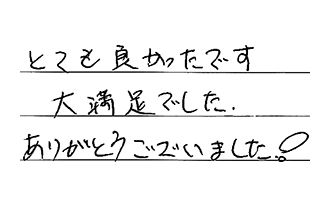 とても良かったです
大満足でした.
ありがとうございました!